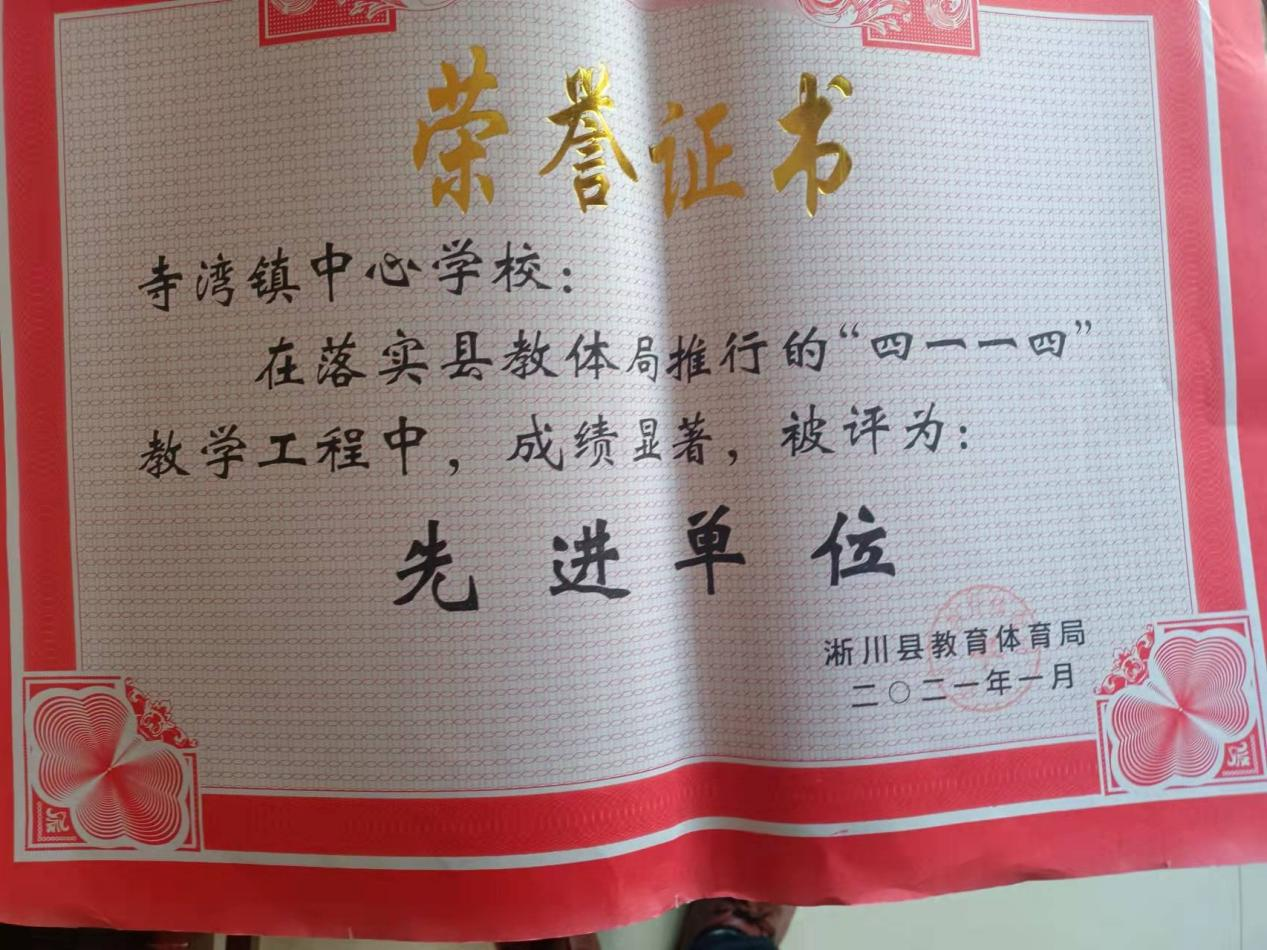 荣誉证书
寺湾镇中心学校：
在落实县教体局推行的“四一一四”
教学工程中，成绩显著，被评为：
先进单位
淅川县教育体育局
二〇二一年一月